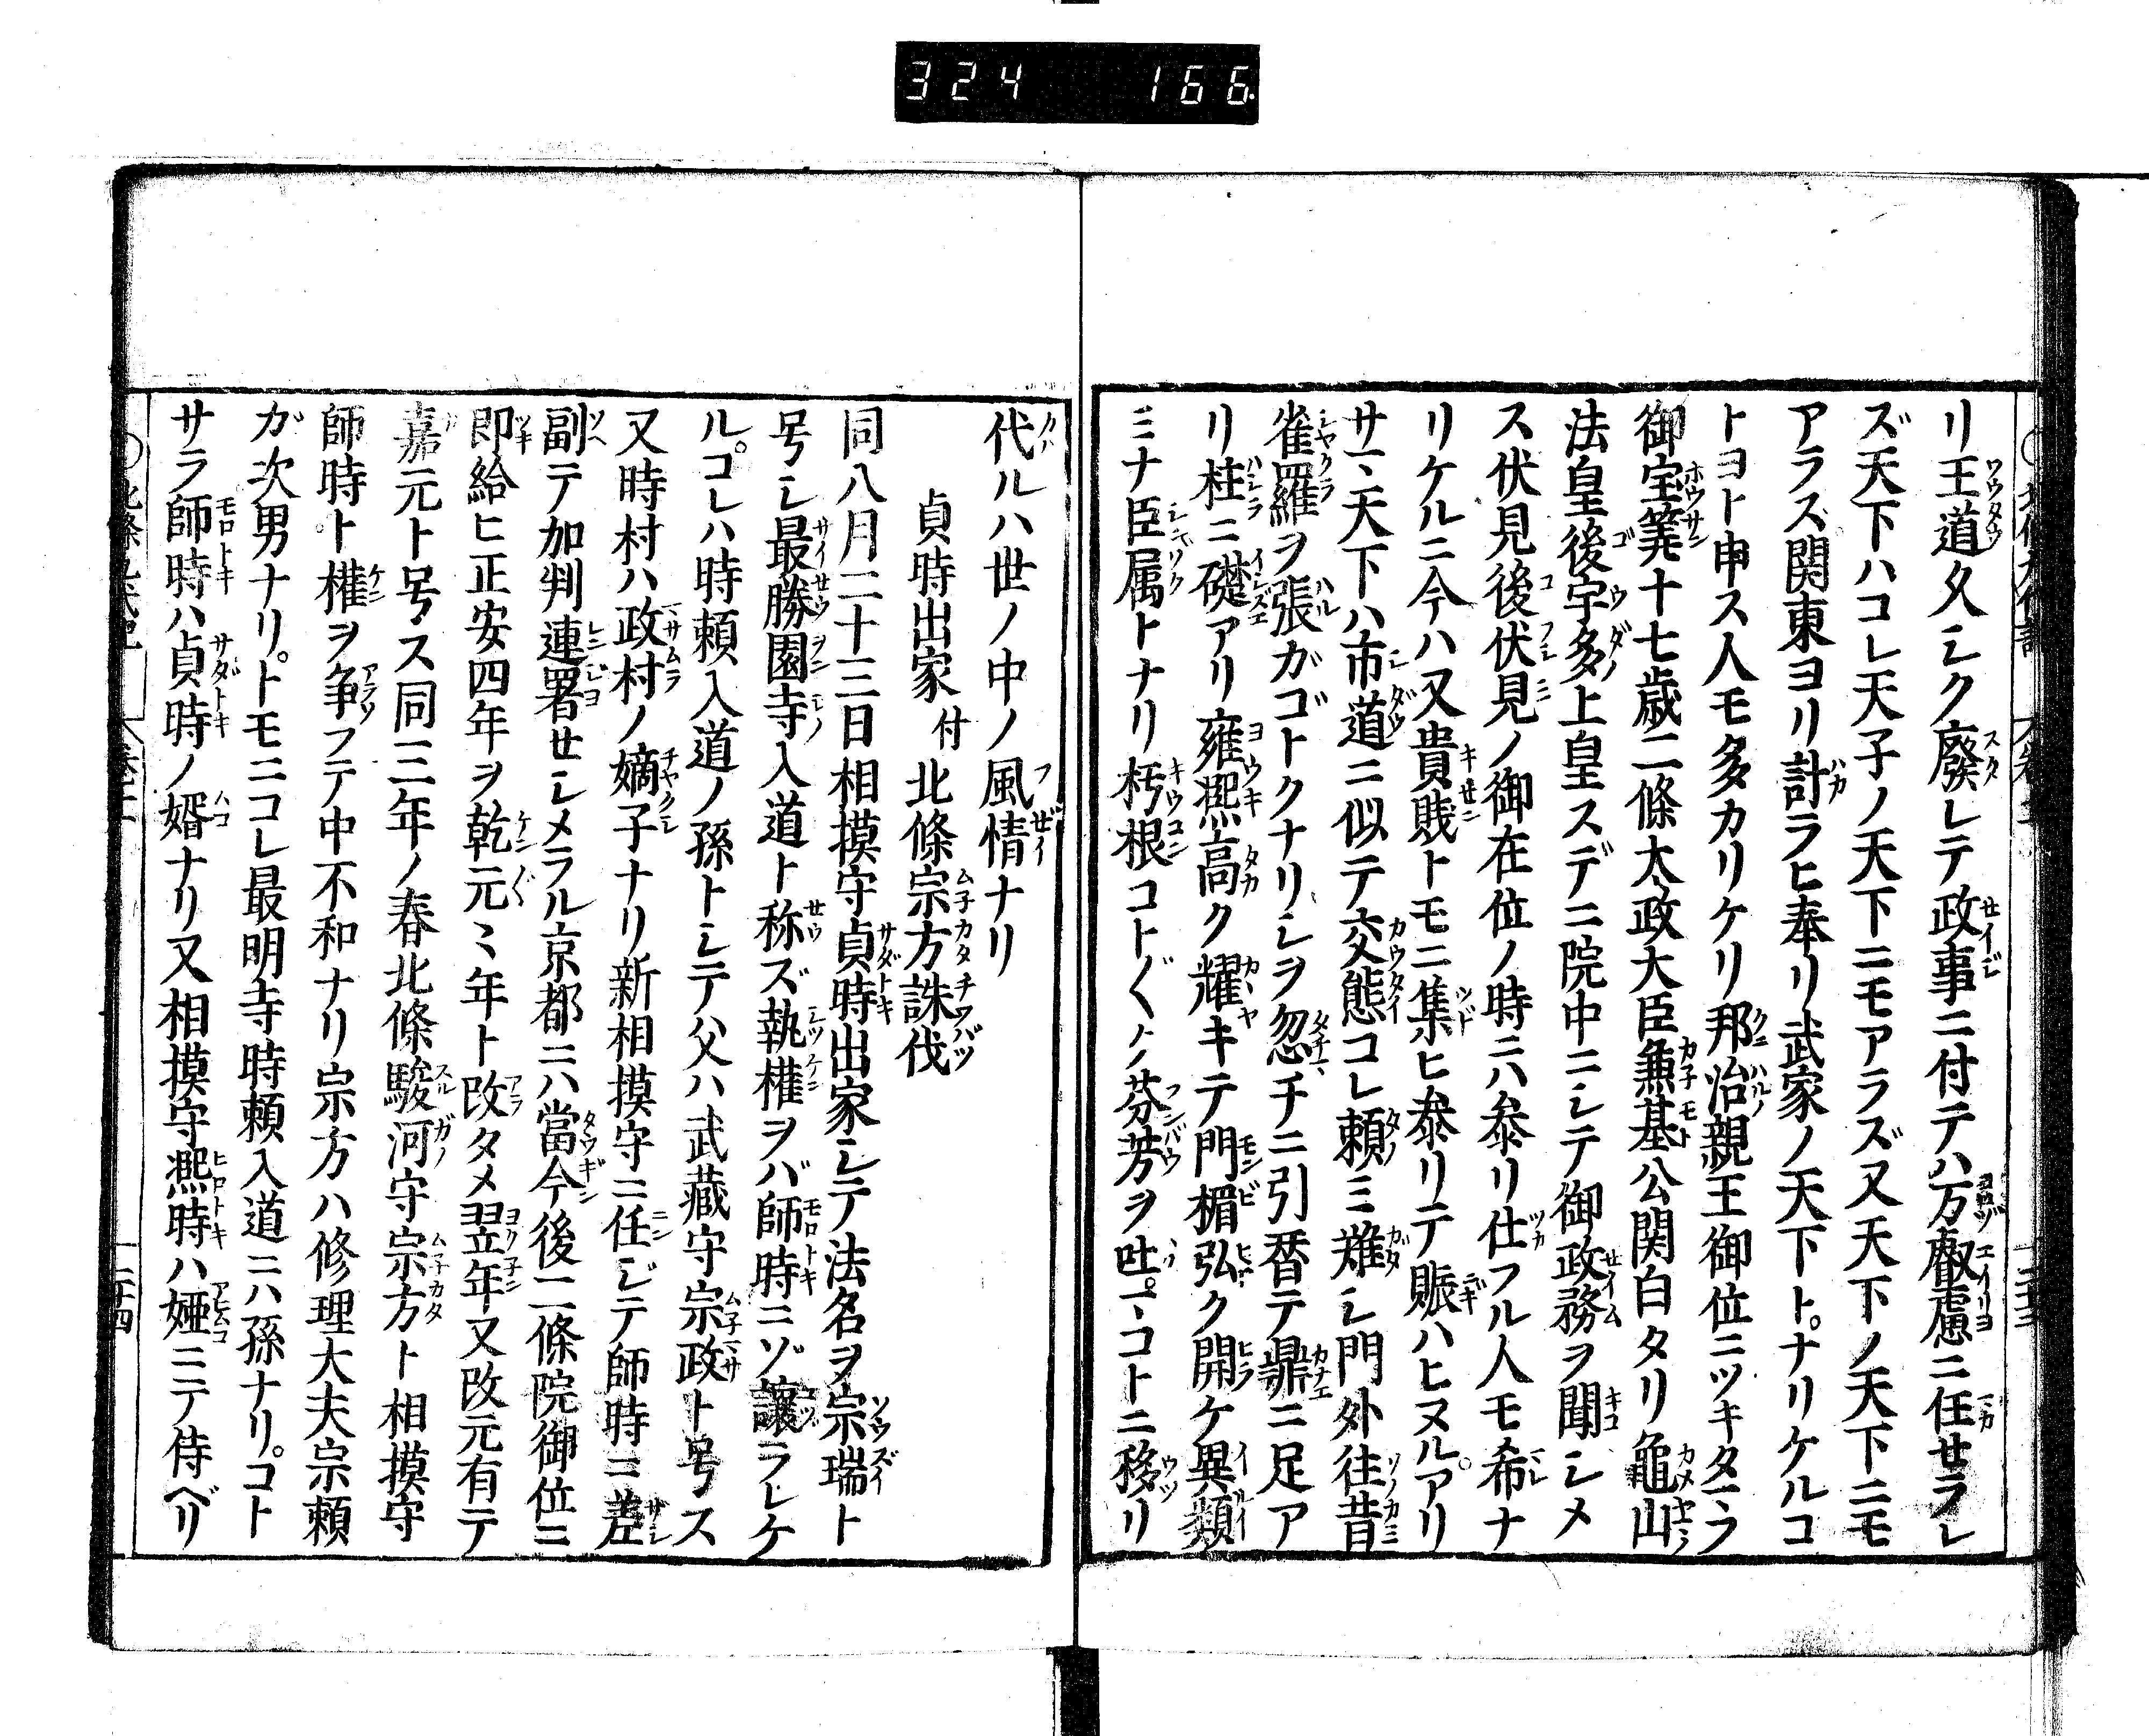 324 166
リ王道久シク廢レテ政事ニ付テハ万叡慮ニ任セラレ
ズ天下ハコレ天子ノ天下ニモアラズ又天下ノ天下ニモ
アラス関東ヨリ計ラヒ奉リ武家ノ天下トナリケルコ
トヨト申ス人モ多カリケリ邦治親王御位ニツキタマフ
御宝筭十七歳二條太政大臣兼基公関白タリ龜山
法皇後宇多上皇スデニ院中ニシテ御政務ヲ聞シメ
ス伏見後伏見ノ御在位ノ時ニハ参リ仕フル人モ希ナ
リケルニ今ハ又貴賎トモニ集ヒ参リテ賑ハヒヌルアリ
サマ天下ハ市道ニ似テ交態コレ頼ミ難シ門外往昔
雀羅ヲ張ガゴトクナリシヲ忽チニ引替テ鼎ニ足ア
リ柱ニ礎アリ雍熈高ク耀キテ門楣弘ク開ケ異類
ミナ臣属トナリ朽根コト〴〵ク芬芳ヲ吐コトニ移リ
代ルハ世ノ中ノ風情ナリ
貞時出家 付 北條宗方誅伐
同八月二十三日相摸守貞時出家シテ法名ヲ宗瑞ト
号シ最勝園寺入道ト称ズ執権ヲバ師時ニゾ讓ラレケ
ルコレハ時頼入道ノ孫トシテ父ハ武藏守宗政ト号ス
又時村ハ政村ノ嫡子ナリ新相摸守ニ任ジテ師時ニ差
副テ加判連署セシメラル京都ニハ當今後二條院御位ニ
即給ヒ正安四年ヲ乾元〻年ト改タメ翌年又改元有テ
嘉元ト号ス同三年ノ春北條駿河守宗方ト相摸守
師時ト權ヲ争フテ中不和ナリ宗方ハ修理大夫宗頼
ガ次男ナリトモニコレ最明寺時頼入道ニハ孫ナリコト
サラ師時ハ貞時ノ婿ナリ又相摸守熈時ハ婭ニテ侍ベリ